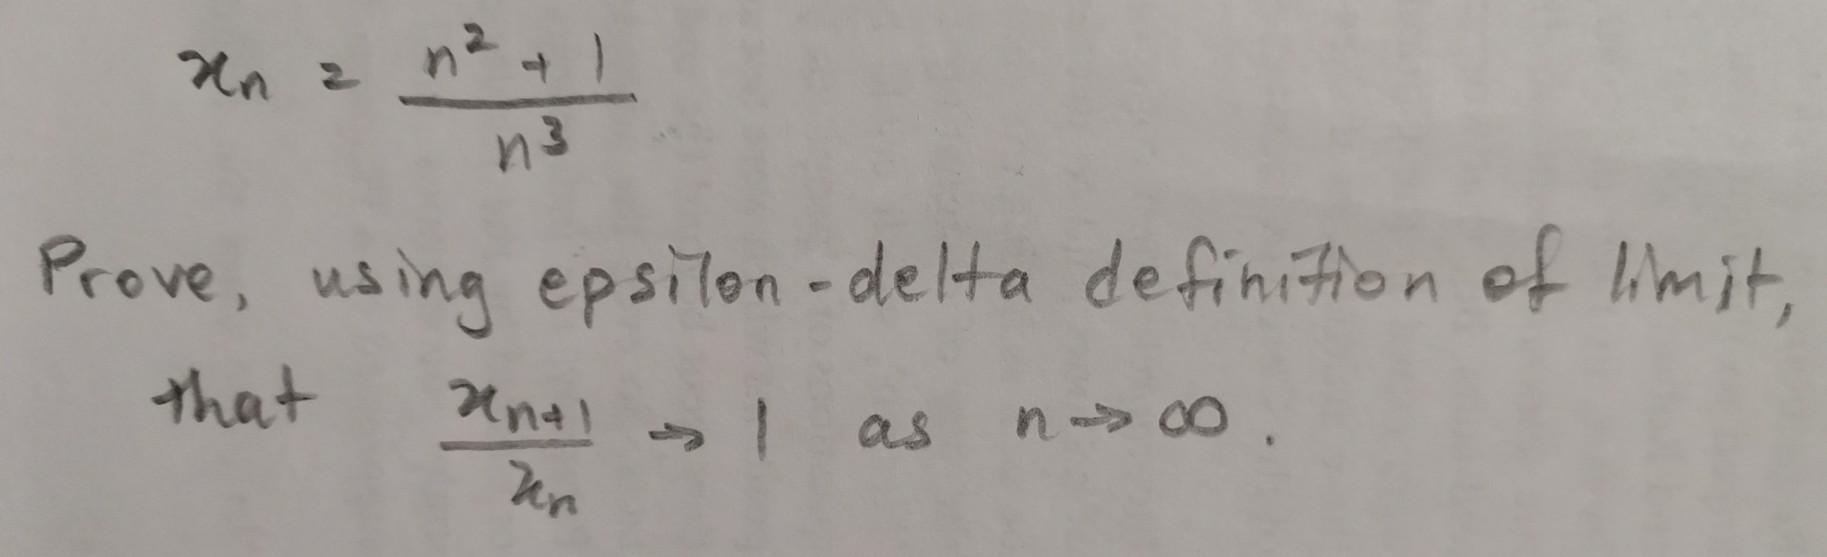 xₙ = (n² + 1)/n³
Prove, using epsilon-delta definition of limit,
that xₙ₊₁/xₙ → 1 as n → ∞.